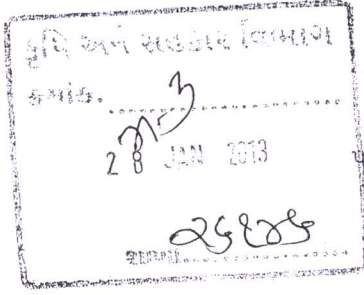 કૃષિ અને સહકાર વિભાગ
ક્રમાંક.
28 JAN 2013
શાખા